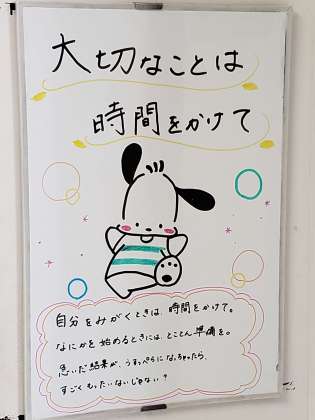 大切なことは
時間をかけて
自分をみがくときは、時間をかけて。
なにかを始めるときには、とことん準備を。
急いだ結果が、うすっぺらになっちゃったら、
すごくもったいないじゃない？